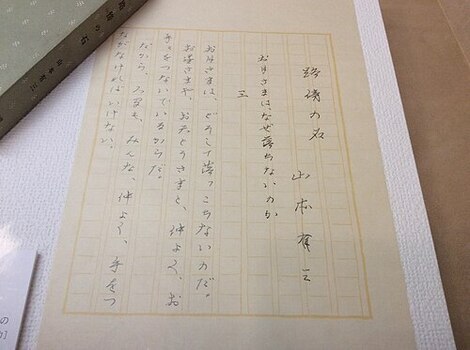 路傍の石
山本有三
お月さまは、なぜ落ちないのか
三
お月さまは、どうして落っこちないのだ。
お星さまや、おてんとうさまと、仲よく、お
手々をつないでいるからだ。
だから、人間も、みんな、仲よく、手をつ
ながなければいけない。
路傍の石
山本有三